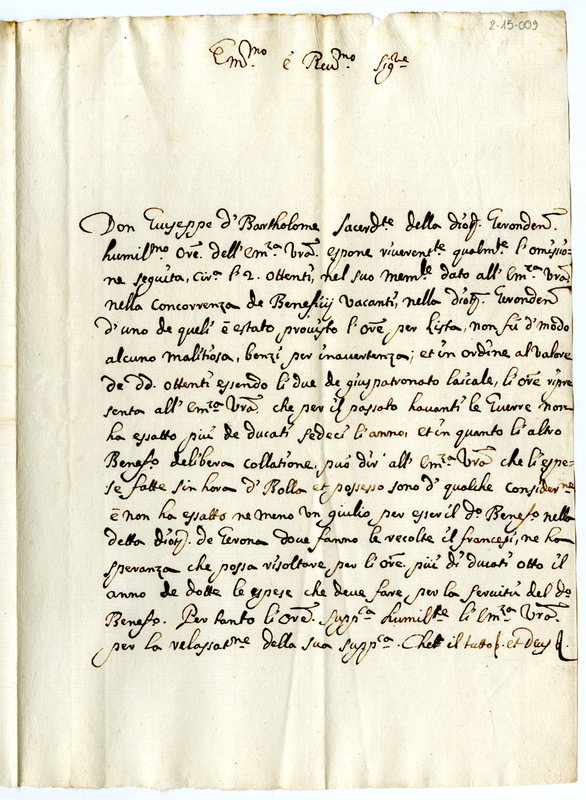 2-15-009
Em.mo è Reu.mo Sig.re
Don Giuseppe d'Bartholome sacerd.te della dioy. Gerondens.
humil.mo Ore. dell'Em.za Vra. espone riverent.te qualm.te l'omisio-
ne seguita, circa l'2. ottenti, nel suo mem.le dato all'Em.za Vra.
nella concorrenza de Beneficij vacanti, nella dioy. Gerondens.
d'uno de queli è estato provisto l'Ore per lista, non fú d'modo
alcuno malitiosa, benzi per inavertenza; et in ordine al valore
de dd. ottenti essendo li due de giuspatronato laicale, li ore ripre
senta all'Em.za Vra. che per il passato havanti le Guerre non
ha essatto piú de ducati sedeci l'anno, et in quanto li altro
Benefo. delibera collatione, puó dir' all'Em.za Vra che li espe-
se fatte sin hora d'Bolla et possesso sono d'qualche consider.ne
è non ha essatto ne meno un giulio per esser il do. Benefo. nella
detta dioy. de Gerona doue fanno le recolte il francesi, ne ha
speranza che possa risoltare per li ore. piú di ducati otto il
anno de dotte le espese che deve fare per la servitú del do.
Benefo. Per tanto li Ore. supp.ca humil.te li Em.za Vra.
per la relassat.ne della sua supp.ca. Che il tutto et Deus